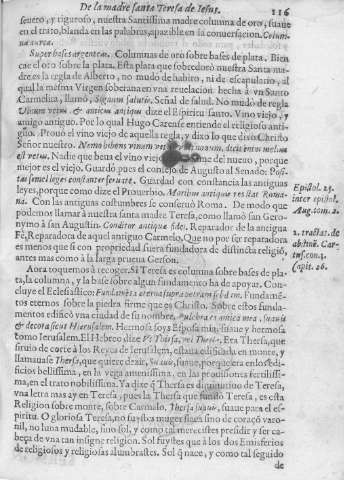 De la madre santa Teresa de Iesus. 116
seuero, y riguroso, nuestra Santissima madre coluna de oro, suaue
en el trato, blanda en las palabras, apazible en su conuersacion. Colum-
na aurea.
Super bases argenteas. Colunas de oro sobre bases de plata. Bien
cae el oro sobre la plata. Esta plata que sobredorò nuestra Santa ma-
dre es la regla de Alberto, no mudo de habito, ni de escapulario, al
qual la mesma Virgen soberana en vna reuelacion hecha à vn Santo
Carmelita, llamò, Signum salutis. Señal de salud. No mudo de regla
Vinum vetus & amicus antiquus dize el Espiritu santo. Vino viejo, y
amigo antiguo. Por lo qual Hugo Carense entiende el religioso anti-
guo. Prouò el vino viejo de aquella regla, y dixo lo que dixo Christo
Señor nuestro. Nemo bibens vinum vetus novum, dicit enim melius
est vetus. Nadie que beua el vino viejo del nueuo, porque
mejor es el viejo. Guardò pues el consejo de Augusto al Senado: Posi-
tas semel leges constanter seruate. Guardad con constancia las antiguas
leyes, porque como dize el Prouerbio. Moribus antiquis res stat Roma-
na. Con las antiguas costumbres se conseruò Roma. De modo que
podemos llamar à nuestra santa madre Teresa, como llamò san Gero-
nymo à san Augustin. Conditor antiquae fidei. Reparador de la antigua
Fè, Reparadora de aquel antiguo Carmelo. Que no por ser reparadora
es menos que si con propriedad fuera fundadora de distincta religiõ,
antes mas como à la larga prueua Gerson.
Aora toquemos à recoger. Si Teresa es coluna sobre bases de pla-
ta, la coluna, y la base sobre algun fundamento ha de apoyar. Con-
cluye el Eclesiastico: Fundamenta eterna supra petram solidam. Fundamẽ-
tos eternos sobre la piedra firme que es Christo. Sobre estos funda-
mentos edificò vna ciudad de su nombre. Pulchra es amica mea, suauis
& decora sicut Hierusalem. Hermosa soys Esposa mia, suaue y hermosa
como Ierusalem. El Hebreo dize Era Thersa, que
siruio de corte à los Reyes de Ierusalem, estaua edificada en monte, y
llamauase Thersa, que quiere dezir, Suauis, suaue, porque era en los edi-
ficios bellissima, en la vega amenissima, en las prouisiones fertilissi-
ma, en el trato nobilissima. Ya dixe q̃ Thersa es diminutiuo de Teresa,
vna letra mas ay en Teresa, pues la Thersa que fundo Teresa, es esta
Religion sobre monte, sobre Carmelo. Thersa suauis, suaue para el es-
piritu. O gloriosa Teresa, no fuystes muger flaca sino de coraçõ varo-
nil, no luna mudable, sino sol, y como tal merecistes presidir y ser ca-
beça de vna tan insigne religion. Sol fuystes que à los dos Emisferios
de religiosos y religiosas alumbrastes. Sol q̃ nace, y como tal seguistes
de
Epistol. 25.
inter epistol.
Aug. com. 2.
2. tractat. de
abstinẽ. Car-
tus. con. 3.
Capit. 26.